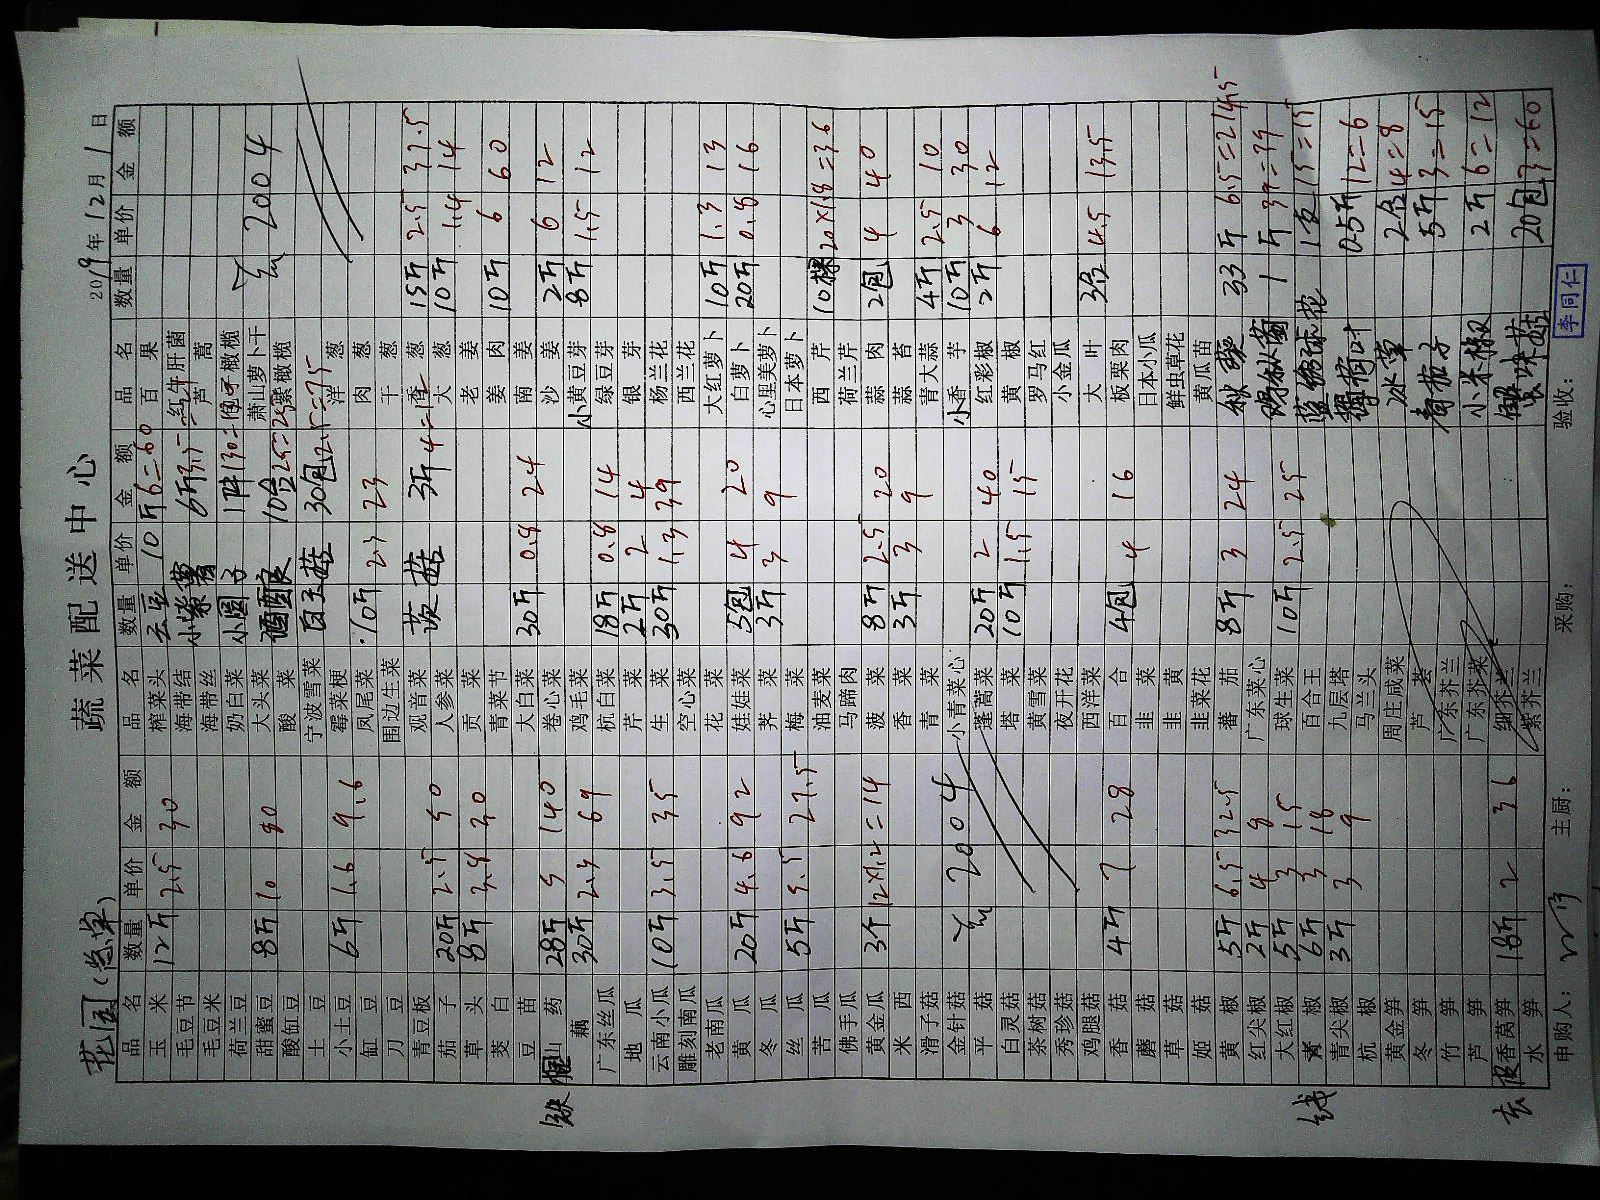 蔬菜配送中心
花园(总单)
2019年12月1日
品名 数量 单价 金额 品名 数量 单价 金额 品名 数量 单价 金额
玉米 12斤 2.5 30 榨菜头 云豆 10斤 6=60 百果
毛豆节 海带结 小紫薯 6斤 3.5
毛豆米 海带丝 芦蒿
荷兰豆 奶白菜 小圆子 1件 130= 橄榄
甜蜜豆 8斤 10 80 大头菜 酒酿 10合 25= 萧山萝卜干 元 2004
酸缸豆 酸菜 紫橄榄
土豆 宁波雪菜 白玉菇 30包 2.5=75
小土豆 6斤 1.6 9.6 霉菜梗 洋葱
缸豆 凤尾菜 10斤 2.3 23 肉葱
刀豆 围边生菜 干葱
青豆板 观音菜 茨菇 3斤 4=12 香葱 15斤 2.5 37.5
茄子 20斤 2.5 50 人参菜 大葱 10斤 1.4 14
草头 8斤 贡菜 老姜
茭白 青菜节 姜肉 10斤 6 60
豆苗 大白菜 30斤 0.8 24 南姜
铁棍山药 28斤 5 140 卷心菜 沙姜 2斤 6 12
藕 30斤 2.3 69 鸡毛菜 小黄豆芽 8斤 1.5 12
广东丝瓜 杭白菜 18斤 0.8 14 绿豆芽
地瓜 芹菜 2斤 2 4 银芽
云南小瓜 10斤 3.5 35 生菜 30斤 1.3 39 杨兰花
雕刻南瓜 空心菜 西兰花
老南瓜 花菜 大红萝卜 10斤 1.3 13
黄瓜 20斤 4.6 92 娃娃菜 5包 4 20 白萝卜 20斤 0.8 16
冬瓜 荠菜 3斤 3 9 心里美萝卜
丝瓜 5斤 5.5 27.5 梅菜 日本萝卜
苦瓜 油麦菜 西芹 10棵 20×1.8=36
佛手瓜 马蹄肉 荷兰芹
黄金瓜 3个 12×1.2=14 菠菜 8斤 2.5 20 蒜肉 2包 4 40
米西 香菜 3斤 3 9 蒜苔
滑子菇 青菜 青大蒜 4斤 2.5 10
金针菇 元 2004 小青菜心 小香芋 10斤 3 30
平菇 蓬蒿菜 20斤 2 40 红彩椒 2斤 6 12
白灵菇 塔菜 10斤 1.5 15 黄椒
茶树菇 黄雪菜 罗马红
秀珍菇 夜开花 小金瓜
鸡腿菇 西洋菜 大叶 3包 4.5 13.5
香菇 4斤 7 28 百合 4包 4 16 板栗肉
蘑菇 韭菜 日本小瓜
草菇 韭黄 鲜虫草花
姬菇 韭菜花 黄瓜苗
黄椒 5斤 6.5 32.5 番茄 8斤 3 24 秋葵 33斤 6.5=214.5
红尖椒 2斤 4 8 广东菜心 鸡枞菌 1斤 39=39
大红椒 5斤 3 15 球生菜 10斤 2.5 25 蓝绣球花 1支 15=15
青椒 6斤 3 18 百合王 荷叶 0.5斤 12=6
线青尖椒 3斤 3 9 九层塔 冰草 2包 4=8
杭椒 马兰头 青茄子 5斤 3=15
黄金笋 周庄咸菜 小米椒 2斤 6=12
冬笋 芦 蟹味菇 20包 3=60
竹笋 广东芥兰
芦笋 广东芥菜
去皮香莴笋 18斤 2 36 细芥兰
水笋 紫芥兰
申购人: 主厨: 采购: 验收: 李同仁